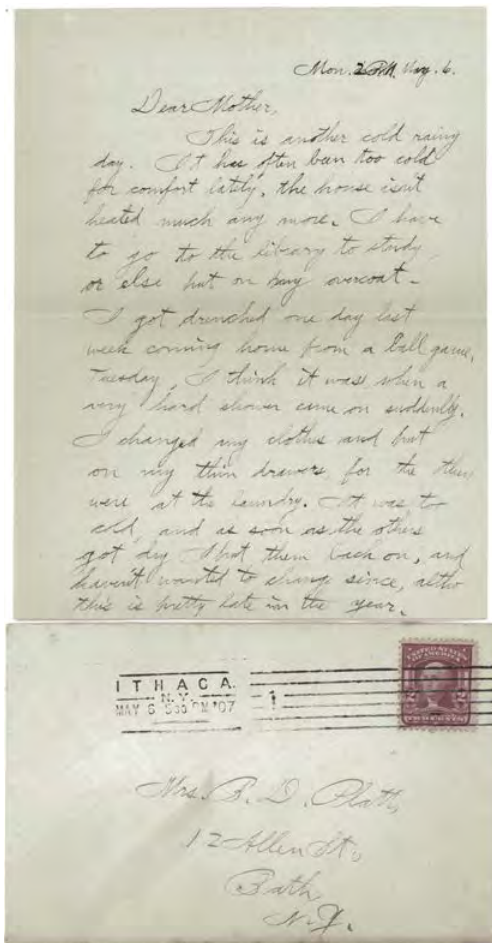 Mon. 2 P.M. May. 6.
Dear Mother,
This is another cold rainy
day. It has often been too cold
for comfort lately, the house isn't
heated much any more. I have
to go to the library to study,
or else put on my overcoat.
I got drenched one day last
week coming home from a ball game,
Tuesday, I think it was when a
very hard shower came on suddenly.
I changed my clothes and put
on my thin drawers, for the
were at the laundry. It was to
cold, and as soon as the others
got dry I put them back on, and
haven't wanted to change since, altho
this is pretty late in the year.
ITHACA.
N.Y.
MAY 6 PM '07
1
UNITED STATES
OF AMERICA
2 2
TWO CENTS
Mrs. B. D. Platt,
12 Allen St.,
Bath,
N.Y.